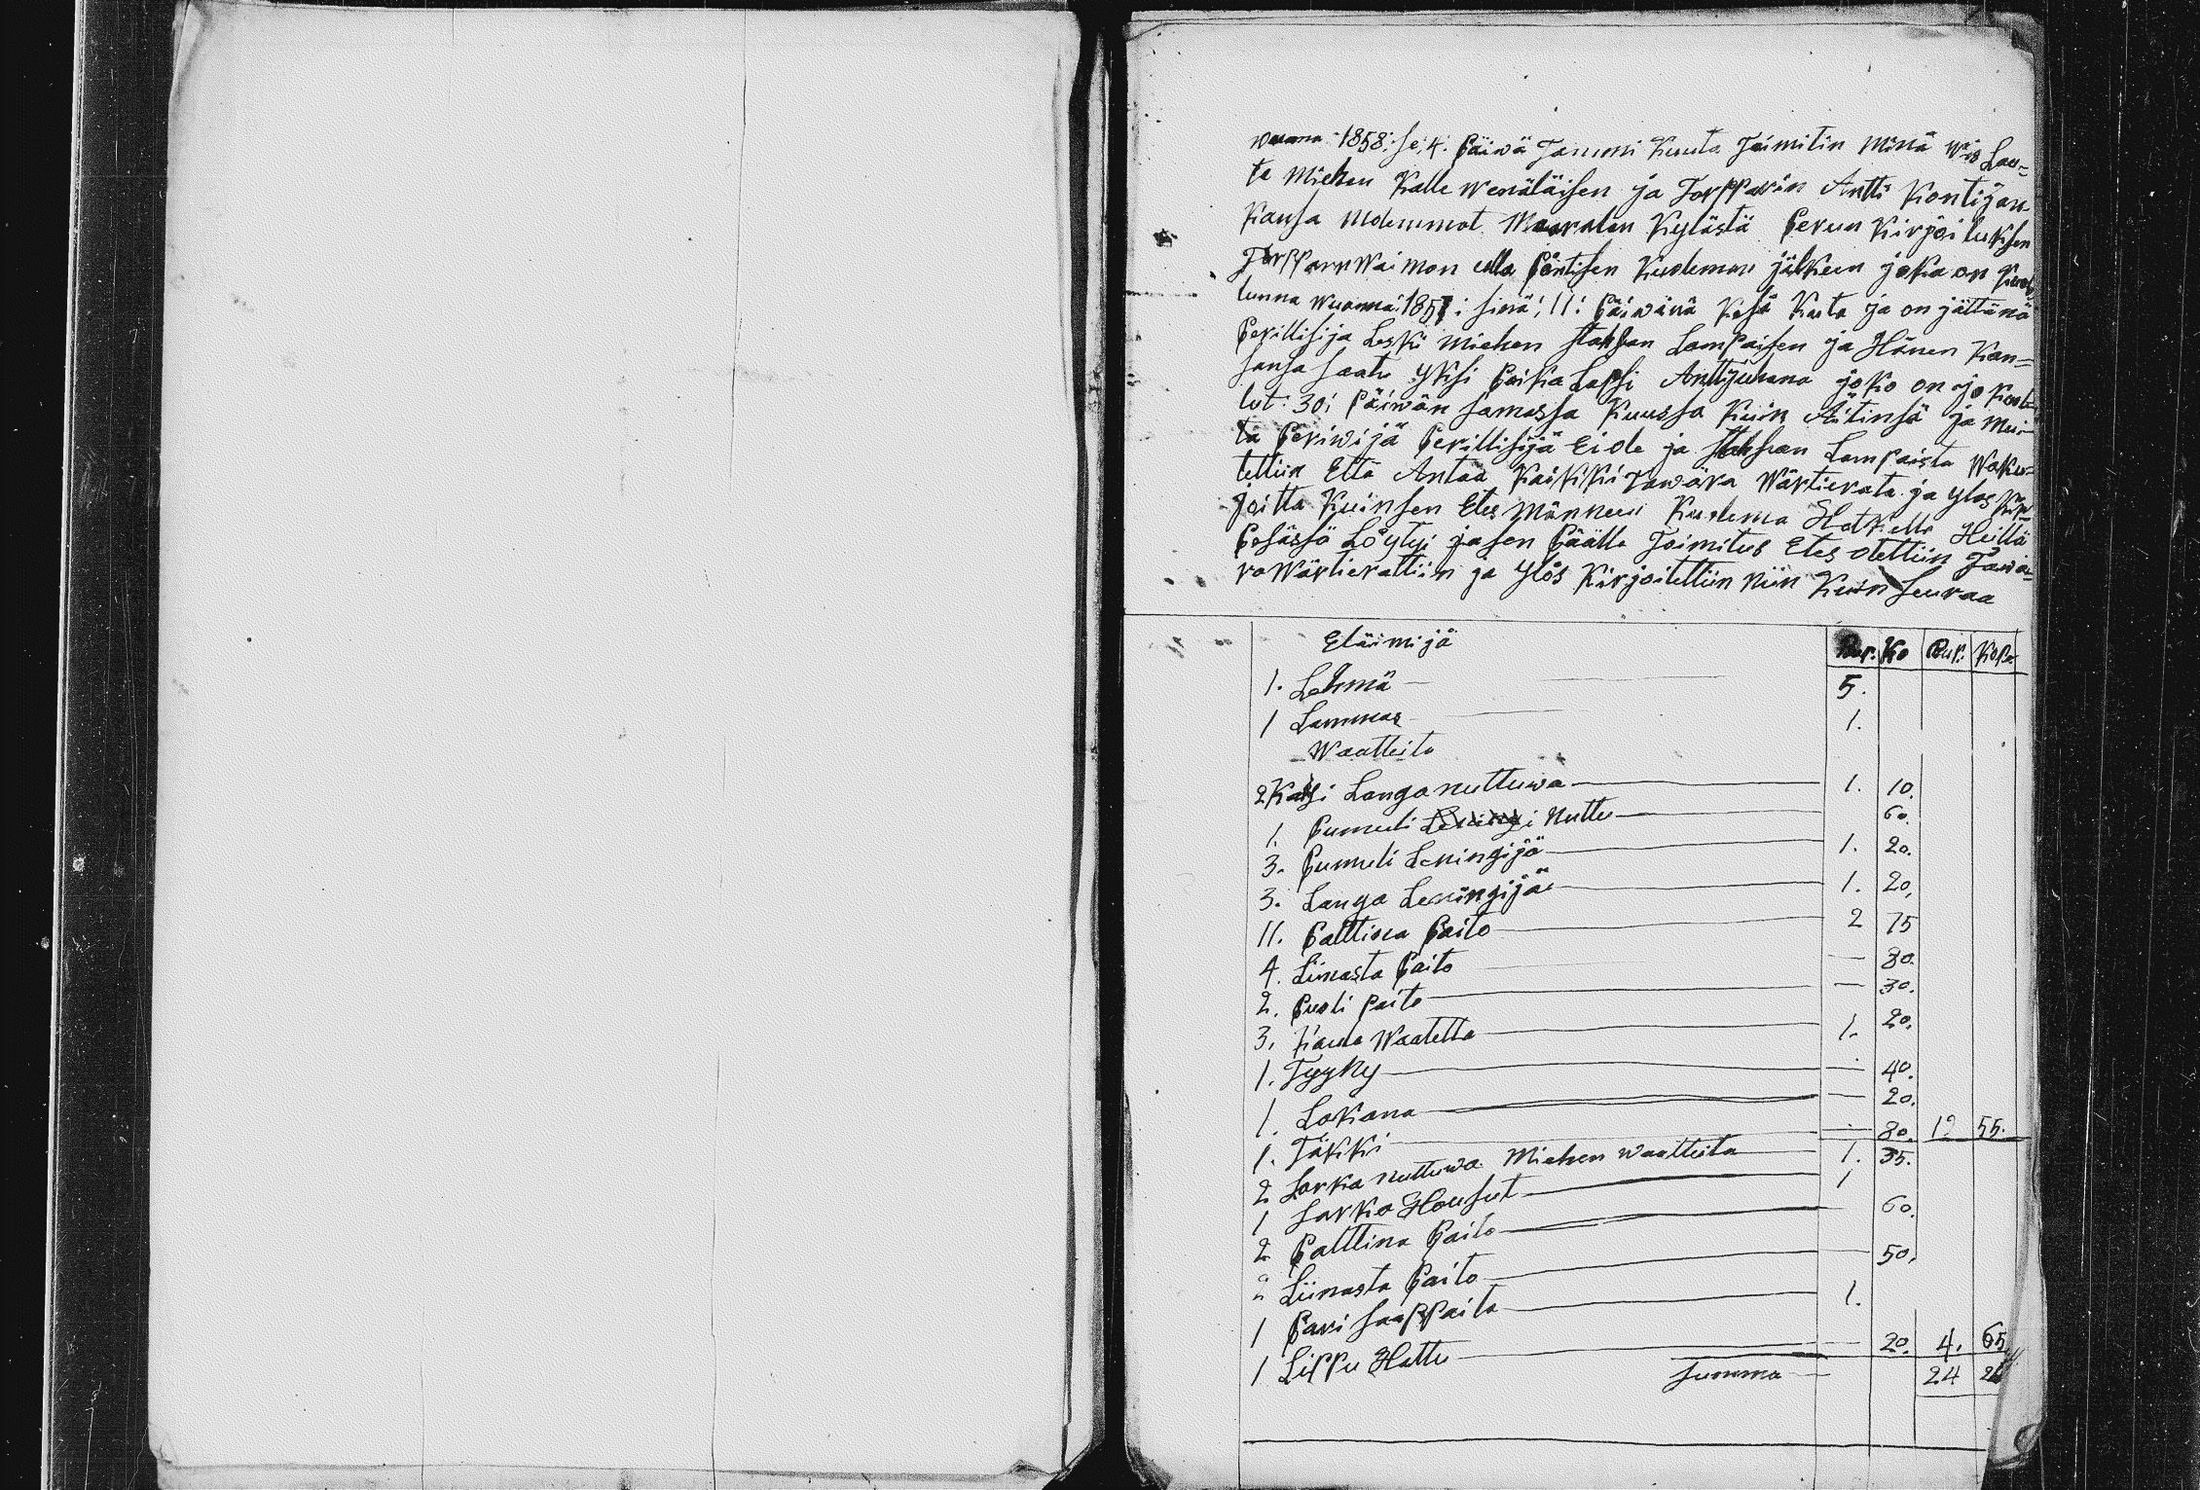 Wuonna 1858: se; 4. Päiwä Tammi Kuuta Toimitin Minä Lau=
ta Miehen Kalle Wenäläisen ja Torpparin Antti Kontijan-
Kansa Molemmat Kylästä Perun Kirjoituksen
Torpparin Waimon ulla Pöntisen Kuoleman jälkeen joka on Kuol
lunna Wuonna: 1857: sinä; 11: Päiwänä Kesä Kuta ja on jättänä
Perillisija Leski Miehen Stahfan Lampaisen ja Hänen Kan=
sansa saatu yksi Poika Lapsi Anttijuhana joko on jo Kuol=
lut: 30; Päiwän samassa Kuussa Kuin Äitinsä ja Mui-
ta Periwijä Perillisijä Eiole ja Stahfan Lampaista Waku=
tettiin Että Antaa KaiKKi Tawara Wärtierata ja ylos Kir-
joitta Kuinsen Etes Männeen Kuolema Hetkellä Heillä
Pesässä Löytyi jasen Päälle Toimitus Etes otettiin Tawa=
ra Wärtierattiin ja ylös Kirjoitettiin Niin Kuin seuraa
Eläimijä Rup. Ko Rup: Kop:
1. Lehmä 5.
1 Lammas 1.
Waatteita
2 Kaksi Langa nuttuwa 1. 10.
1. Pumuli Nuttu 60.
3. Pumuli Leningijä 1. 20.
3. Langa Leningijä 1. 20.
11. Palttina Paito 2 75
4. Liinasta Paito — 80.
2. Puoli Paito — 30.
3. Waatetta 1. 20.
1. Tyyny — 40.
1. Lakana — 20.
1. Täkki — 80. 1 55.
2 Sarka nuttuwa Miehen Waatteita 1. 35.
1 Sarka Housut 1
2 Palttina Paito 60.
Liinasta Paito — 50.
1 Pari Saappaita 1.
1 Lippu Hattu — 20. 4. 65
Summa — 24